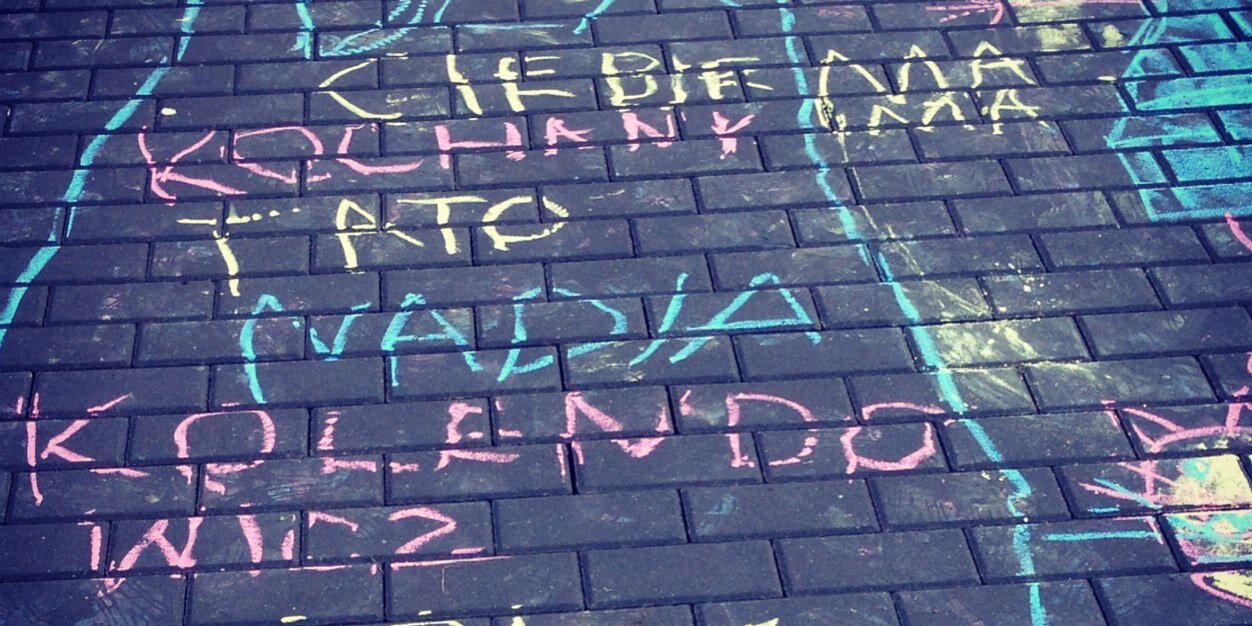 CIEBIE MA
MA
KOCHANY
TATO
NADIA
KOLENDO
WICZ